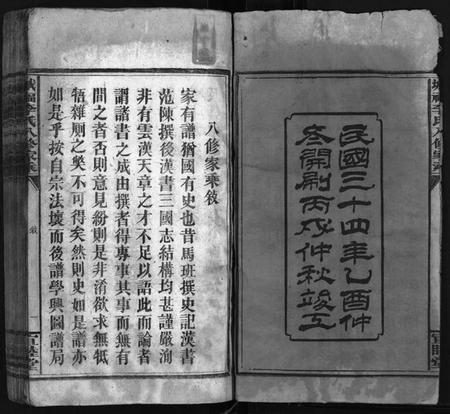 民國三十四年乙酉仲
冬開刷丙戌仲秋竣工
八修家乘敘
家有譜猶國有史也昔馬班撰史記漢書
范陳撰後漢書三國志結構均甚謹嚴洵
非有雲漢天章之才不足以語此而論者
謂諸書之成由撰者得專事其事而無有
間之者否則意見紛則是非淆欲求無牴
牾雜廁之獘不可得矣然則史如是譜亦
如是乎按自宗法壞而後譜學興圖譜局
八修家乘
敘
睦堂